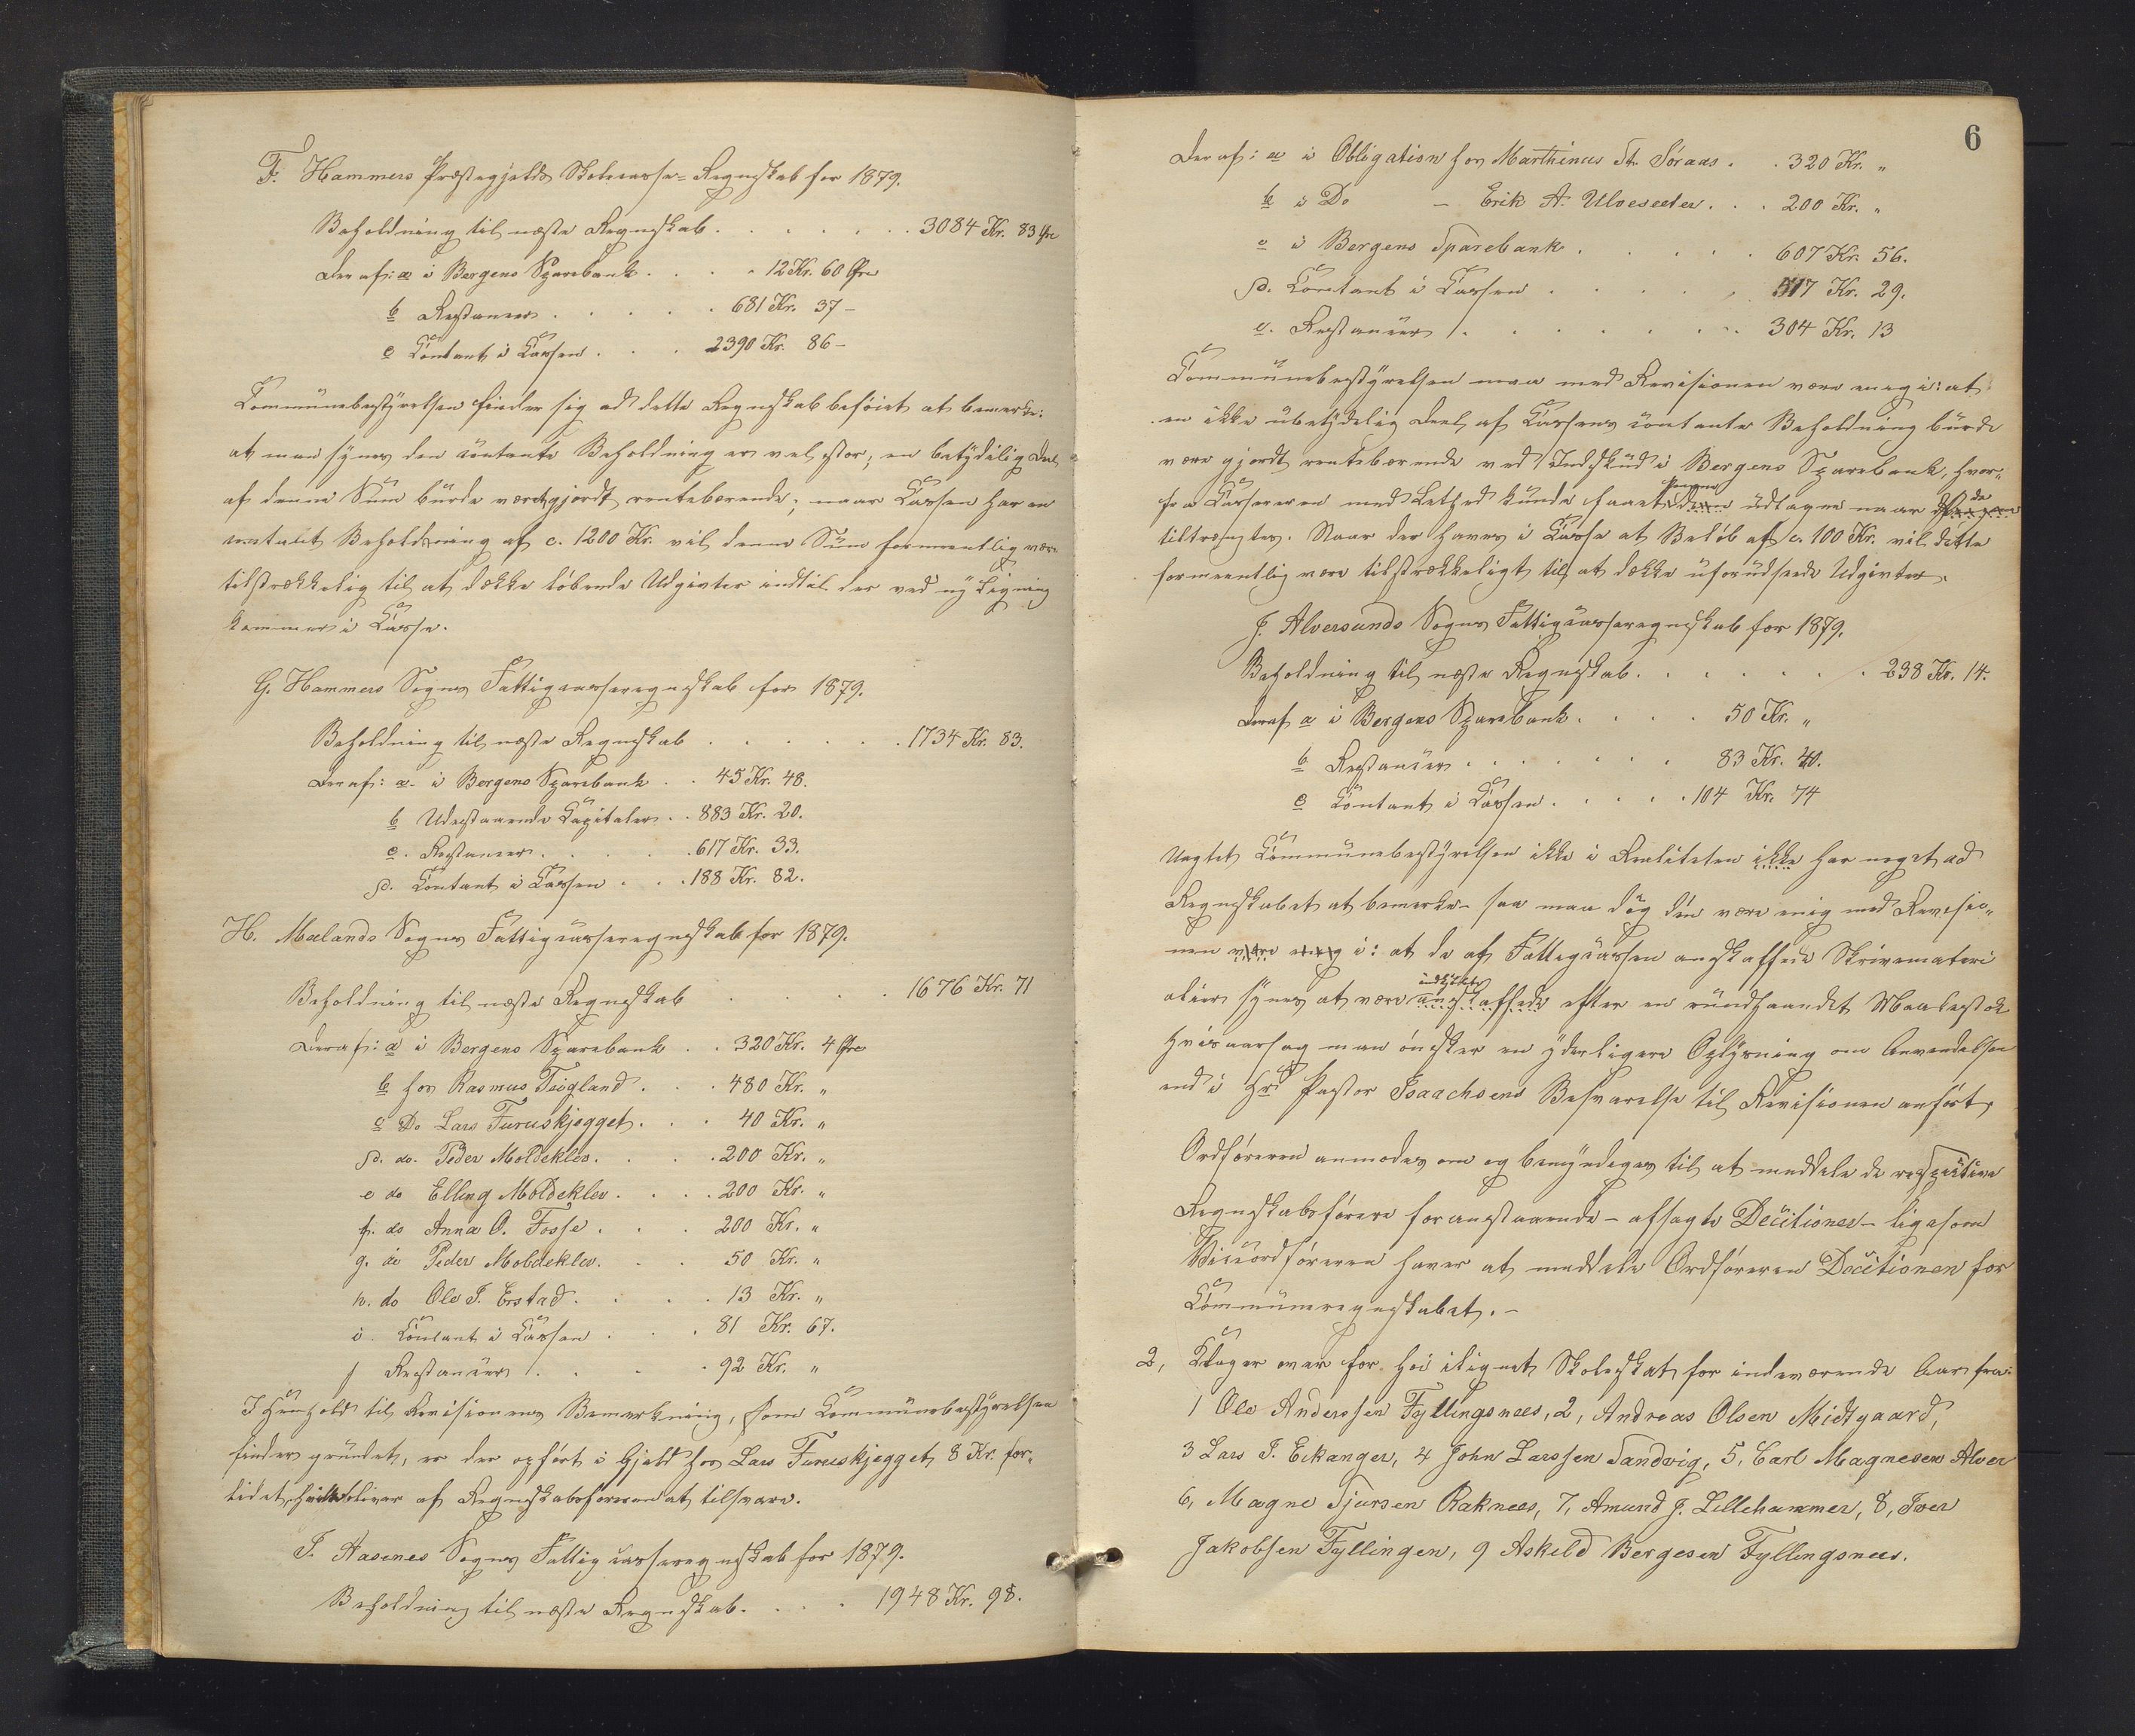 F. Hammers Præstegjelds Skolecasse-Regnskab for 1879.
Beholdning til næste Regnskab . . . . . . 3084 Kr. 83 Øre
Deraf: a i Bergens Sparebank . . . 12 Kr. 60 Øre
b Restancer . . . . . 681 Kr. 37 –
c Contant i Cassen . . . 2390 Kr. 86 –
Communebestyrelsen finder sig ad dette Regnskab beføiet at bemerke:
at man synes den contante Beholdning er vel stor; en betydelig Deel
af denne Sum burde været gjort rentebærende; naar Cassen har en
contant Beholdning af c. 1200 Kr. vil denne Sum formeentlig være
tilstrækkelig til at dække løbende Udgivter indtil der ved ny Ligning
kommer i Casse.
G. Hammers Sogns Fattigcasseregnskab for 1879.
Beholdning til næste Regnskab . . . . . . 1734 Kr. 83.
Deraf: a. i Bergens Sparebank . . 45 Kr. 48.
b Udestaaende Capitaler . . 883 Kr. 20.
c. Restancer . . . . . 617 Kr. 33.
d. Contant i Cassen . . . 188 Kr. 82.
H. Mælands Sogns Fattigcasseregnskab for 1879.
Beholdning til næste Regnskab . . . . . 1676 Kr. 71
Deraf: a i Bergens Sparebank . . 320 Kr. 4 Øre
b hos Rasmus Teigland . . . 480 Kr. "
c Do Lars Furuskjegget . . . 40 Kr. "
d. do. Peder Moldeklev . . . . 200 Kr. "
e do Elling Moldeklev . . . . 200 Kr. "
f. do Anna O. Fosse . . . . 200 Kr. "
g. do Peder Moldeklev . . . 50 Kr. "
h. do Ole I. Erstad . . . . 13 Kr. "
i. Contant i Cassen . . . 81 Kr. 67.
j Restancer . . . . 92 Kr. "
I Henhold til Revisionens Bemerkning, som Communebestyrelsen
finder grundet, er der opført i Gjeld hos Lars Furuskjegget 8 Kr. for
lidet, hvilke bliver af Regnskabsføreren at tilsvare.
I. Aasenes Sogns Fattigcasseregnskab for 1879.
Beholdning til næste Regnskab . . . . 1948 Kr. 98.
6
Deraf: a i Obligation hos Marthinus St. Søraas . . 320 Kr. "
b i Do – Erik A. Ulvesæter . . . 200 Kr. "
c i Bergens Sparebank . . . . . 607 Kr. 56.
d. Contant i Cassen . . . . . 517 Kr. 29.
e. Restancer . . . . . . . 304 Kr. 13
Communebestyrelsen maa med Revisionen være enig i: at
en ikke ubetydelig Deel af Cassens contante Beholdning burde
være gjordt rentebærende ved Indskud i Bergens Sparebank, hvor-
fra Cassereren med Lethed kunde faaet Pengene udtagne naar de
tiltrængtes. Naar der haves i Casse et Beløb af c. 100 Kr. vil dette
formeentlig være tilstrækkeligt til at dække uforudseede Udgivter.
J. Alversunds Sogns Fattigcasseregnskab for 1879.
Beholdning til næste Regnskab . . . . . . 238 Kr. 14.
Deraf a i Bergens Sparebank . . . . 50 Kr. "
b Restancer . . . . . . . 83 Kr. 40.
c Contant i Cassen . . . . . 104 Kr. 74
Uagtet Communebestyrelsen ikke i Realiteten ikke har noget ad
Regnskabet at bemerke – saa maa dog den være enig med Revisio-
nen være enig i: at de af Fattigcassen anskaffede Skrivemateri
alier synes at være indkjøbte anskaffede efter en rundhaandet Maalestok
hvisaarsag man ønsker en yderligere Oplysning om Anvendelsen
end i Hr. Pastor Isaachsens Besvarelse til Revisionen anført.
Ordføreren anmodes om og bemyndiges til at meddele de respective
Regnskabsførere foranstaaende – afsagte Decitioner – ligesom
Viceordføreren haver at meddele Ordføreren Decitionen for
Communeregnskabet. –
2, Klager over for høi ilignet Skoleskat for indeværende Aar fra:
1 Ole Anderssen Fyllingsnees, 2, Andreas Olsen Midtgaard,
3 Lars I. Eikanger, 4 John Larssen Sandvig, 5, Carl Magnesen Alver
6, Magne Sjursen Raknees, 7, Amund J. Lillehammer, 8, Iver
Jakobsen Fyllingen, 9 Askild Bergesen Fyllingsnees.